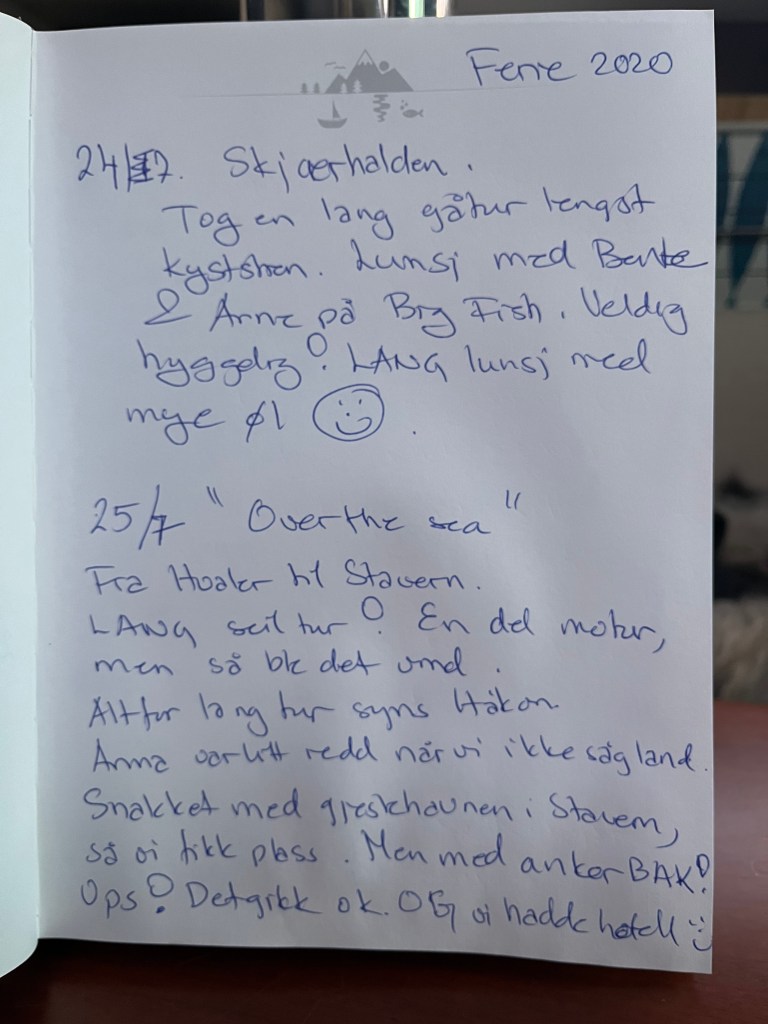 Ferie 2020
24/7. Skjærhalden.
Tog en lang gåtur lengst
kyststien. Lunsj med Bente
& Arne på Big Fish. Veldig
hyggelig! LANG lunsj med
mye øl
25/7 "Over the sea"
Fra Hvaler til Stavern.
LANG seiltur! En del motor,
men så ble det vind.
Altfor lang tur syns Håkon.
Anna var litt redd når vi ikke såg land.
Snakket med gjestehavnen i Stavern,
så vi fikk plass. Men med anker BAK!
Ops! Det gikk ok. OG vi hadde hotell :)